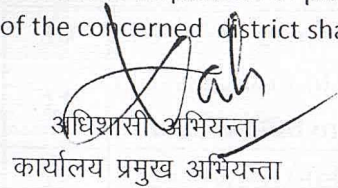 of the concerned district sha
अधिशासी अभियन्ता
कार्यालय प्रमुख अभियन्ता